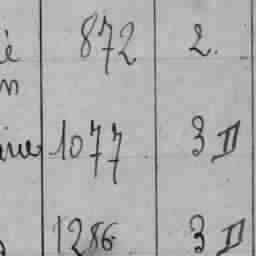 é 872 2.
n
ine 1077 3 II
1286 3 II